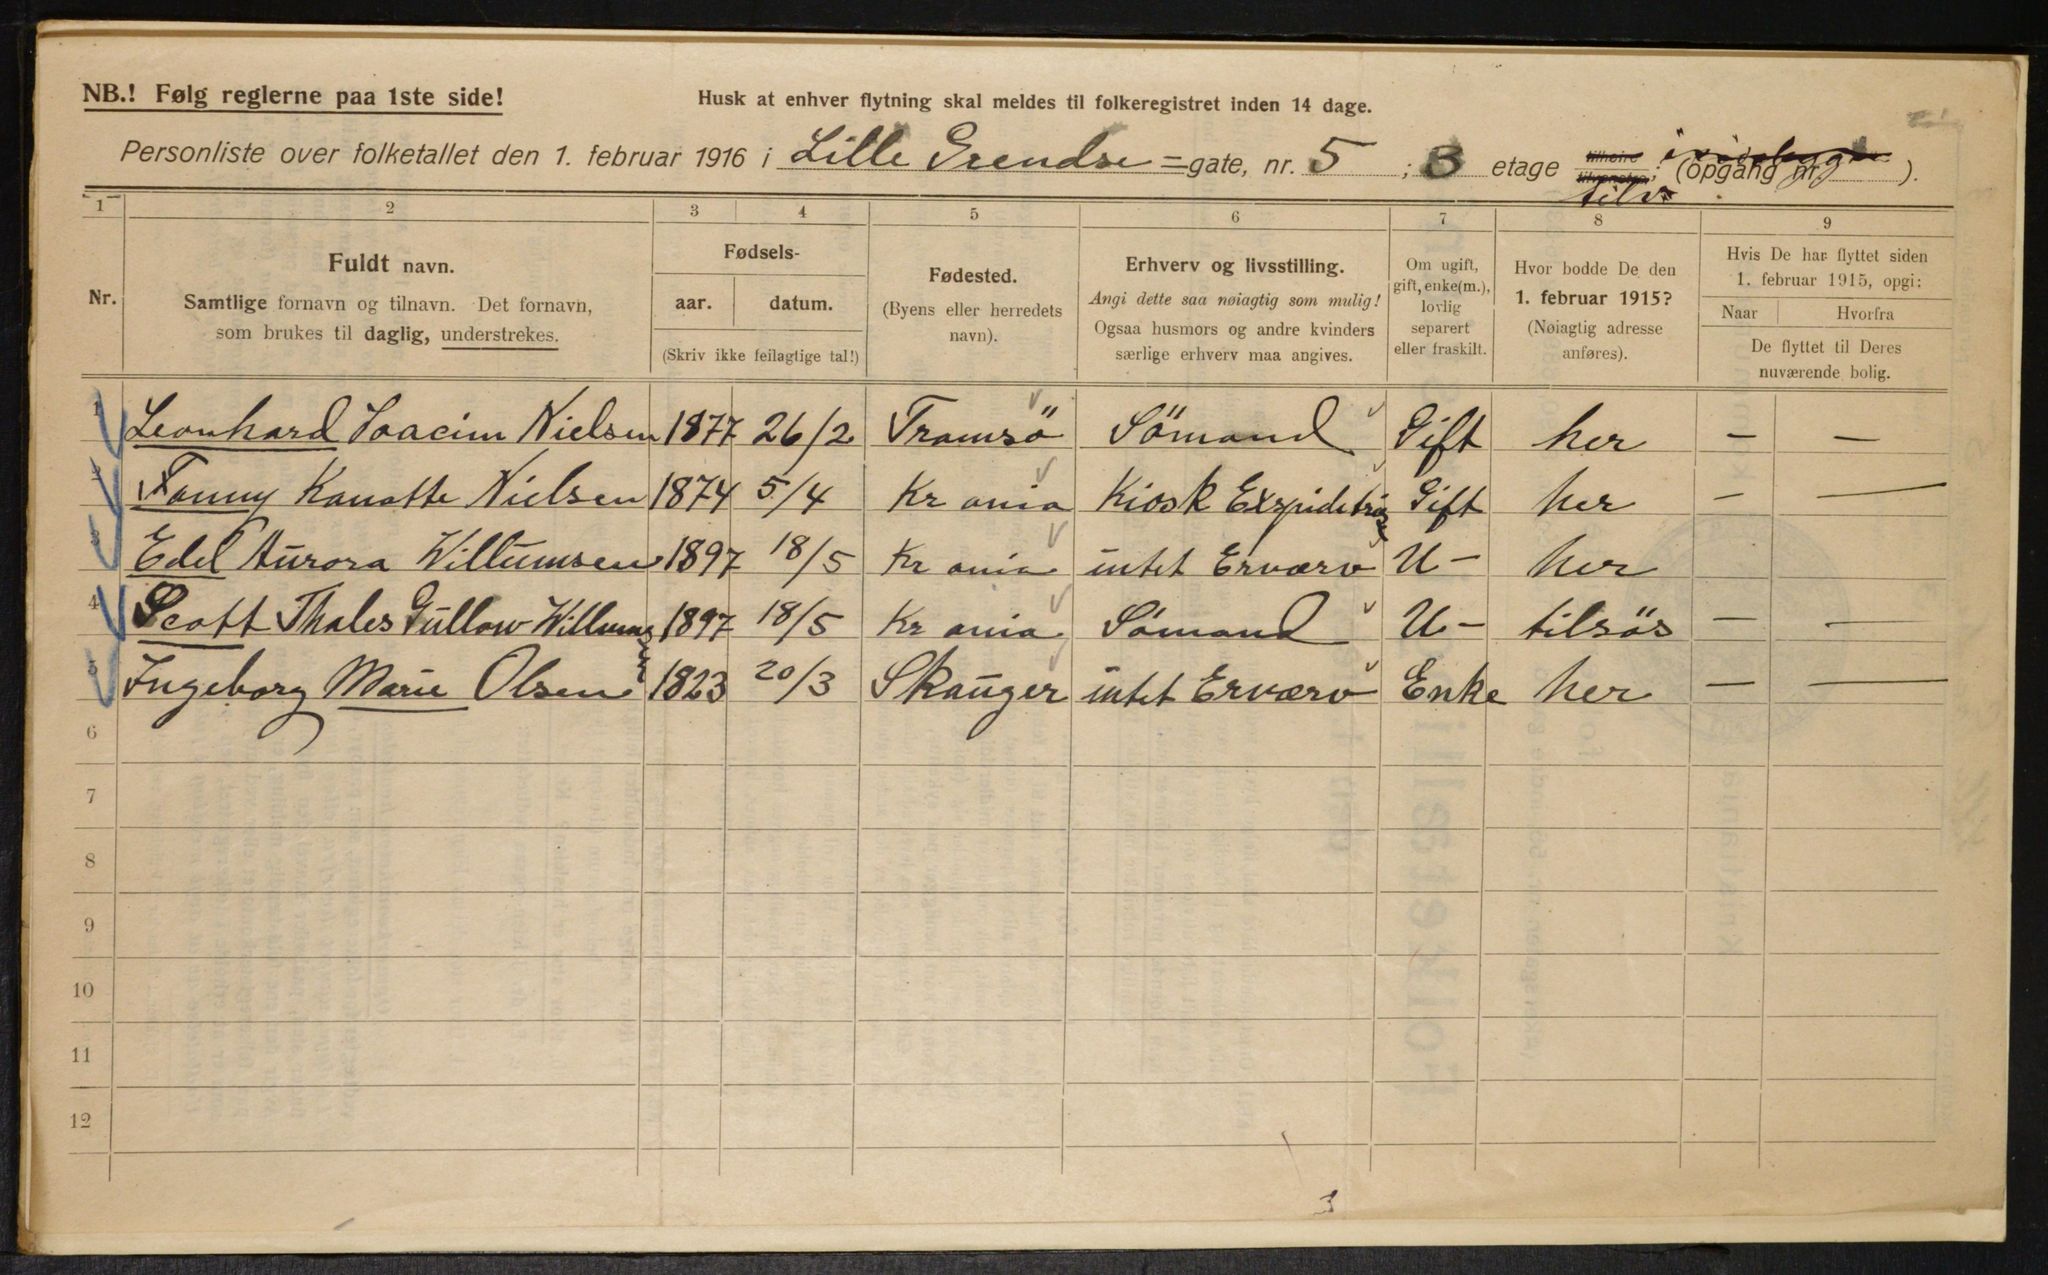 NB.! Følg reglerne paa 1ste side!
Husk at enhver flytning skal meldes til folkeregistret inden 14 dage.
Personliste over folketallet den 1. februar 1916 i Lille Grendse = gate, nr. 5 ; 3 etage tilhøire tilvenstre; tilv. (opgang nr. ).
1 2 3 4 5 6 7 8 9
Nr.
Fuldt navn.
Samtlige fornavn og tilnavn. Det fornavn,
som brukes til daglig, understrekes.
Fødsels-
aar. datum.
(Skriv ikke feilagtige tal!)
Fødested.
(Byens eller herredets
navn).
Erhverv og livsstilling.
Angi dette saa nøiagtig som mulig!
Ogsaa husmors og andre kvinders
særlige erhverv maa angives.
Om ugift,
gift, enke(m.),
lovlig
separert
eller fraskilt.
Hvor bodde De den
1. februar 1915?
(Nøiagtig adresse
anføres).
Hvis De har flyttet siden
1. februar 1915, opgi:
Naar Hvorfra
De flyttet til Deres
nuværende bolig.
1 Leonhard Joacim Nielsen 1877 26/2 Tromsö Sömand Gift her — —
2 Fanny Kanatte Nielsen 1874 5/4 Kr ania Kiosk Exspiditris Gift her — —
3 Edel Aurora Willumsen 1897 18/5 Kr ania intet Erværv U— her
4 Scott Thales Güllow Willumsen 1897 18/5 Kr ania Sömand U— tilsös — —
5 Ingeborg Marie Olsen 1823 20/3 Skauger intet Erværv Enke her — —
6
7
8
9
10
11
12
3